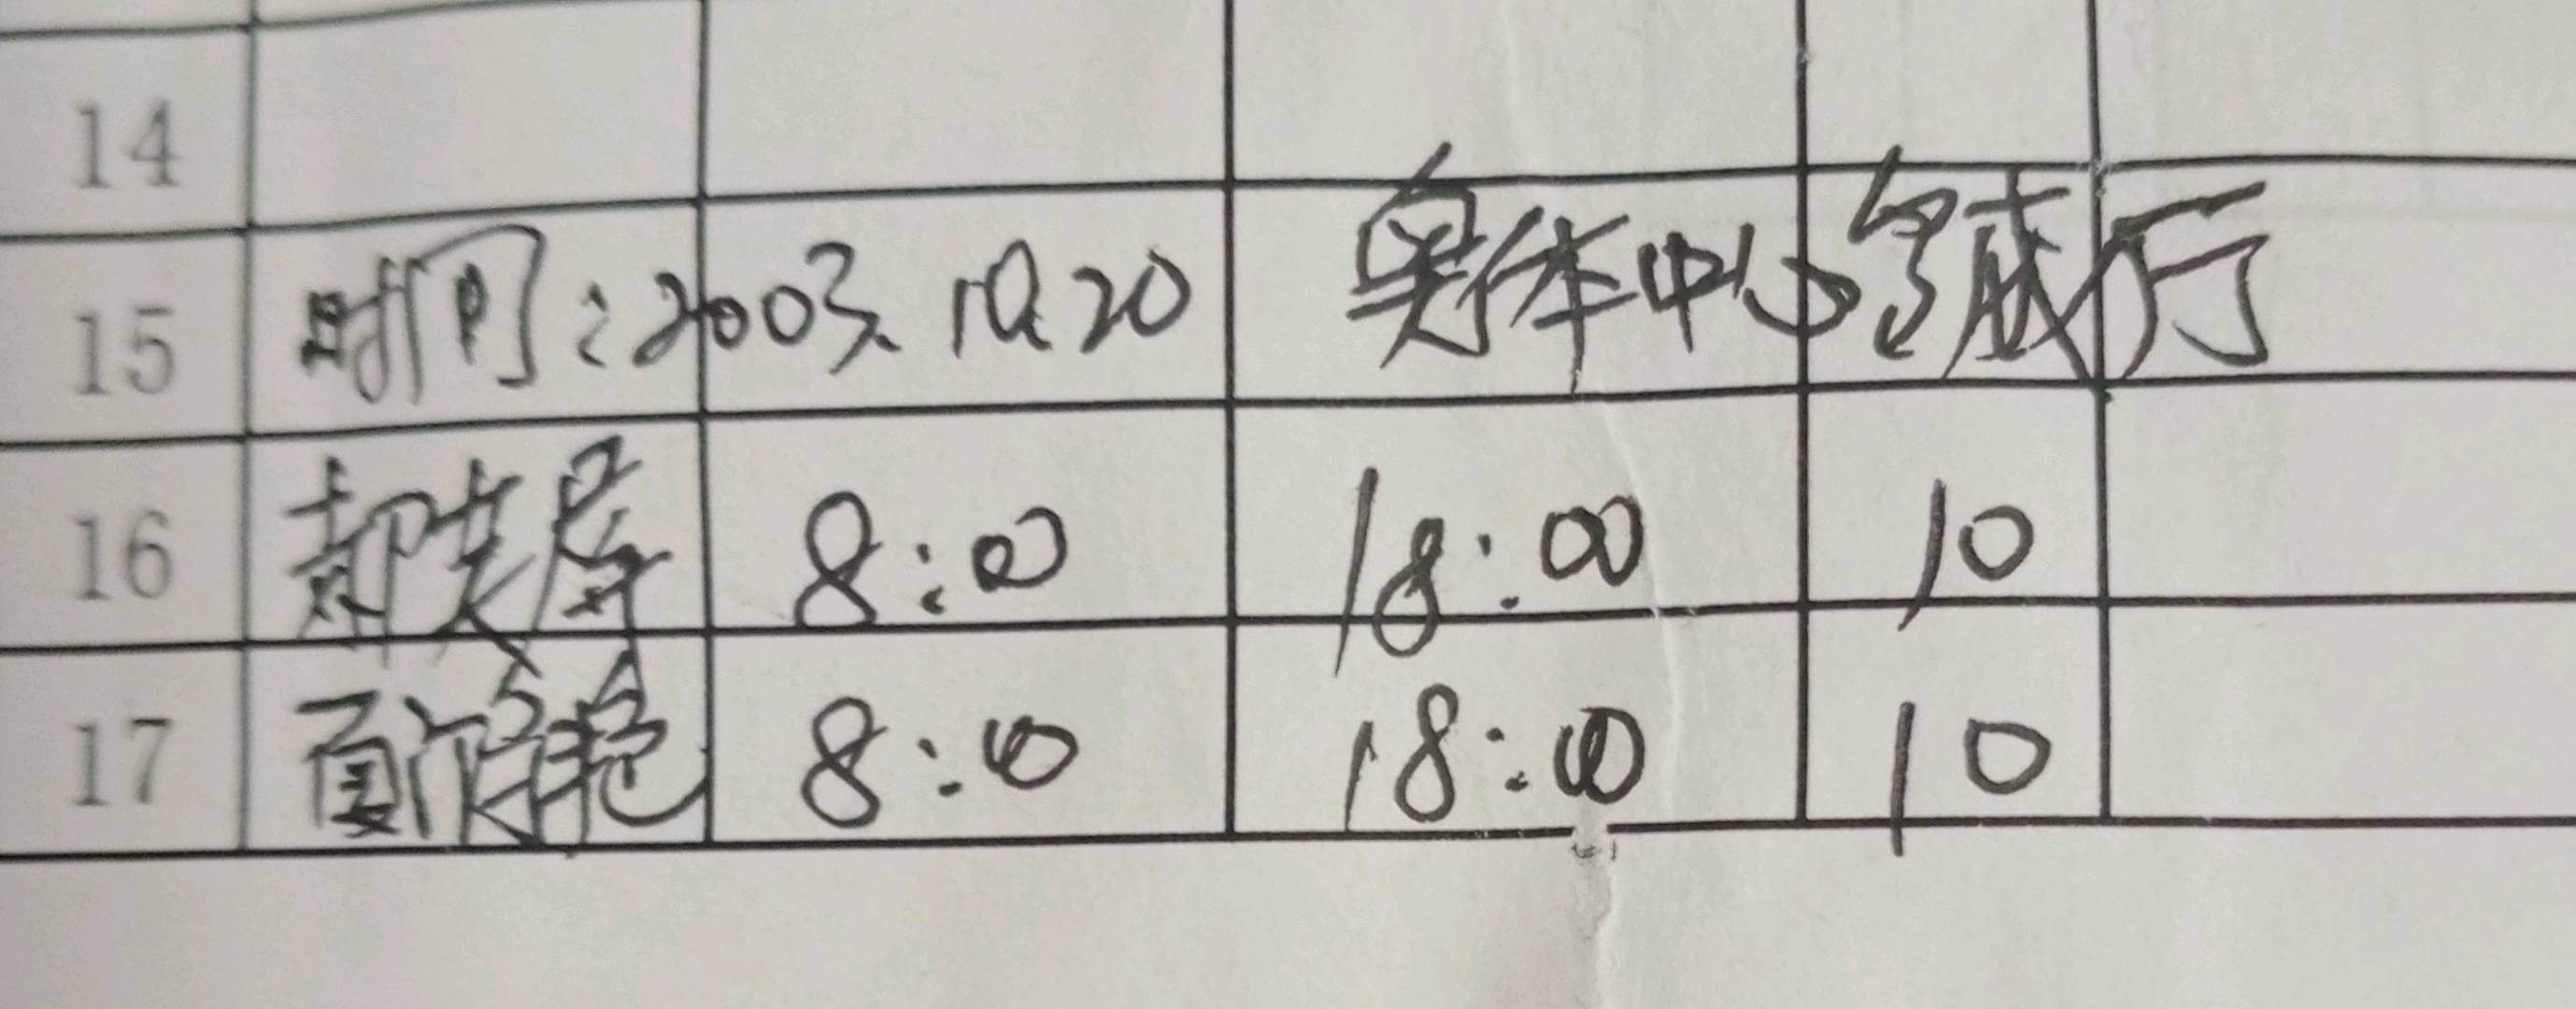 14
15 时间:2003.10.20 奥体中心
16 郝 8:00 18:00 10
17 夏 8:00 18:00 10